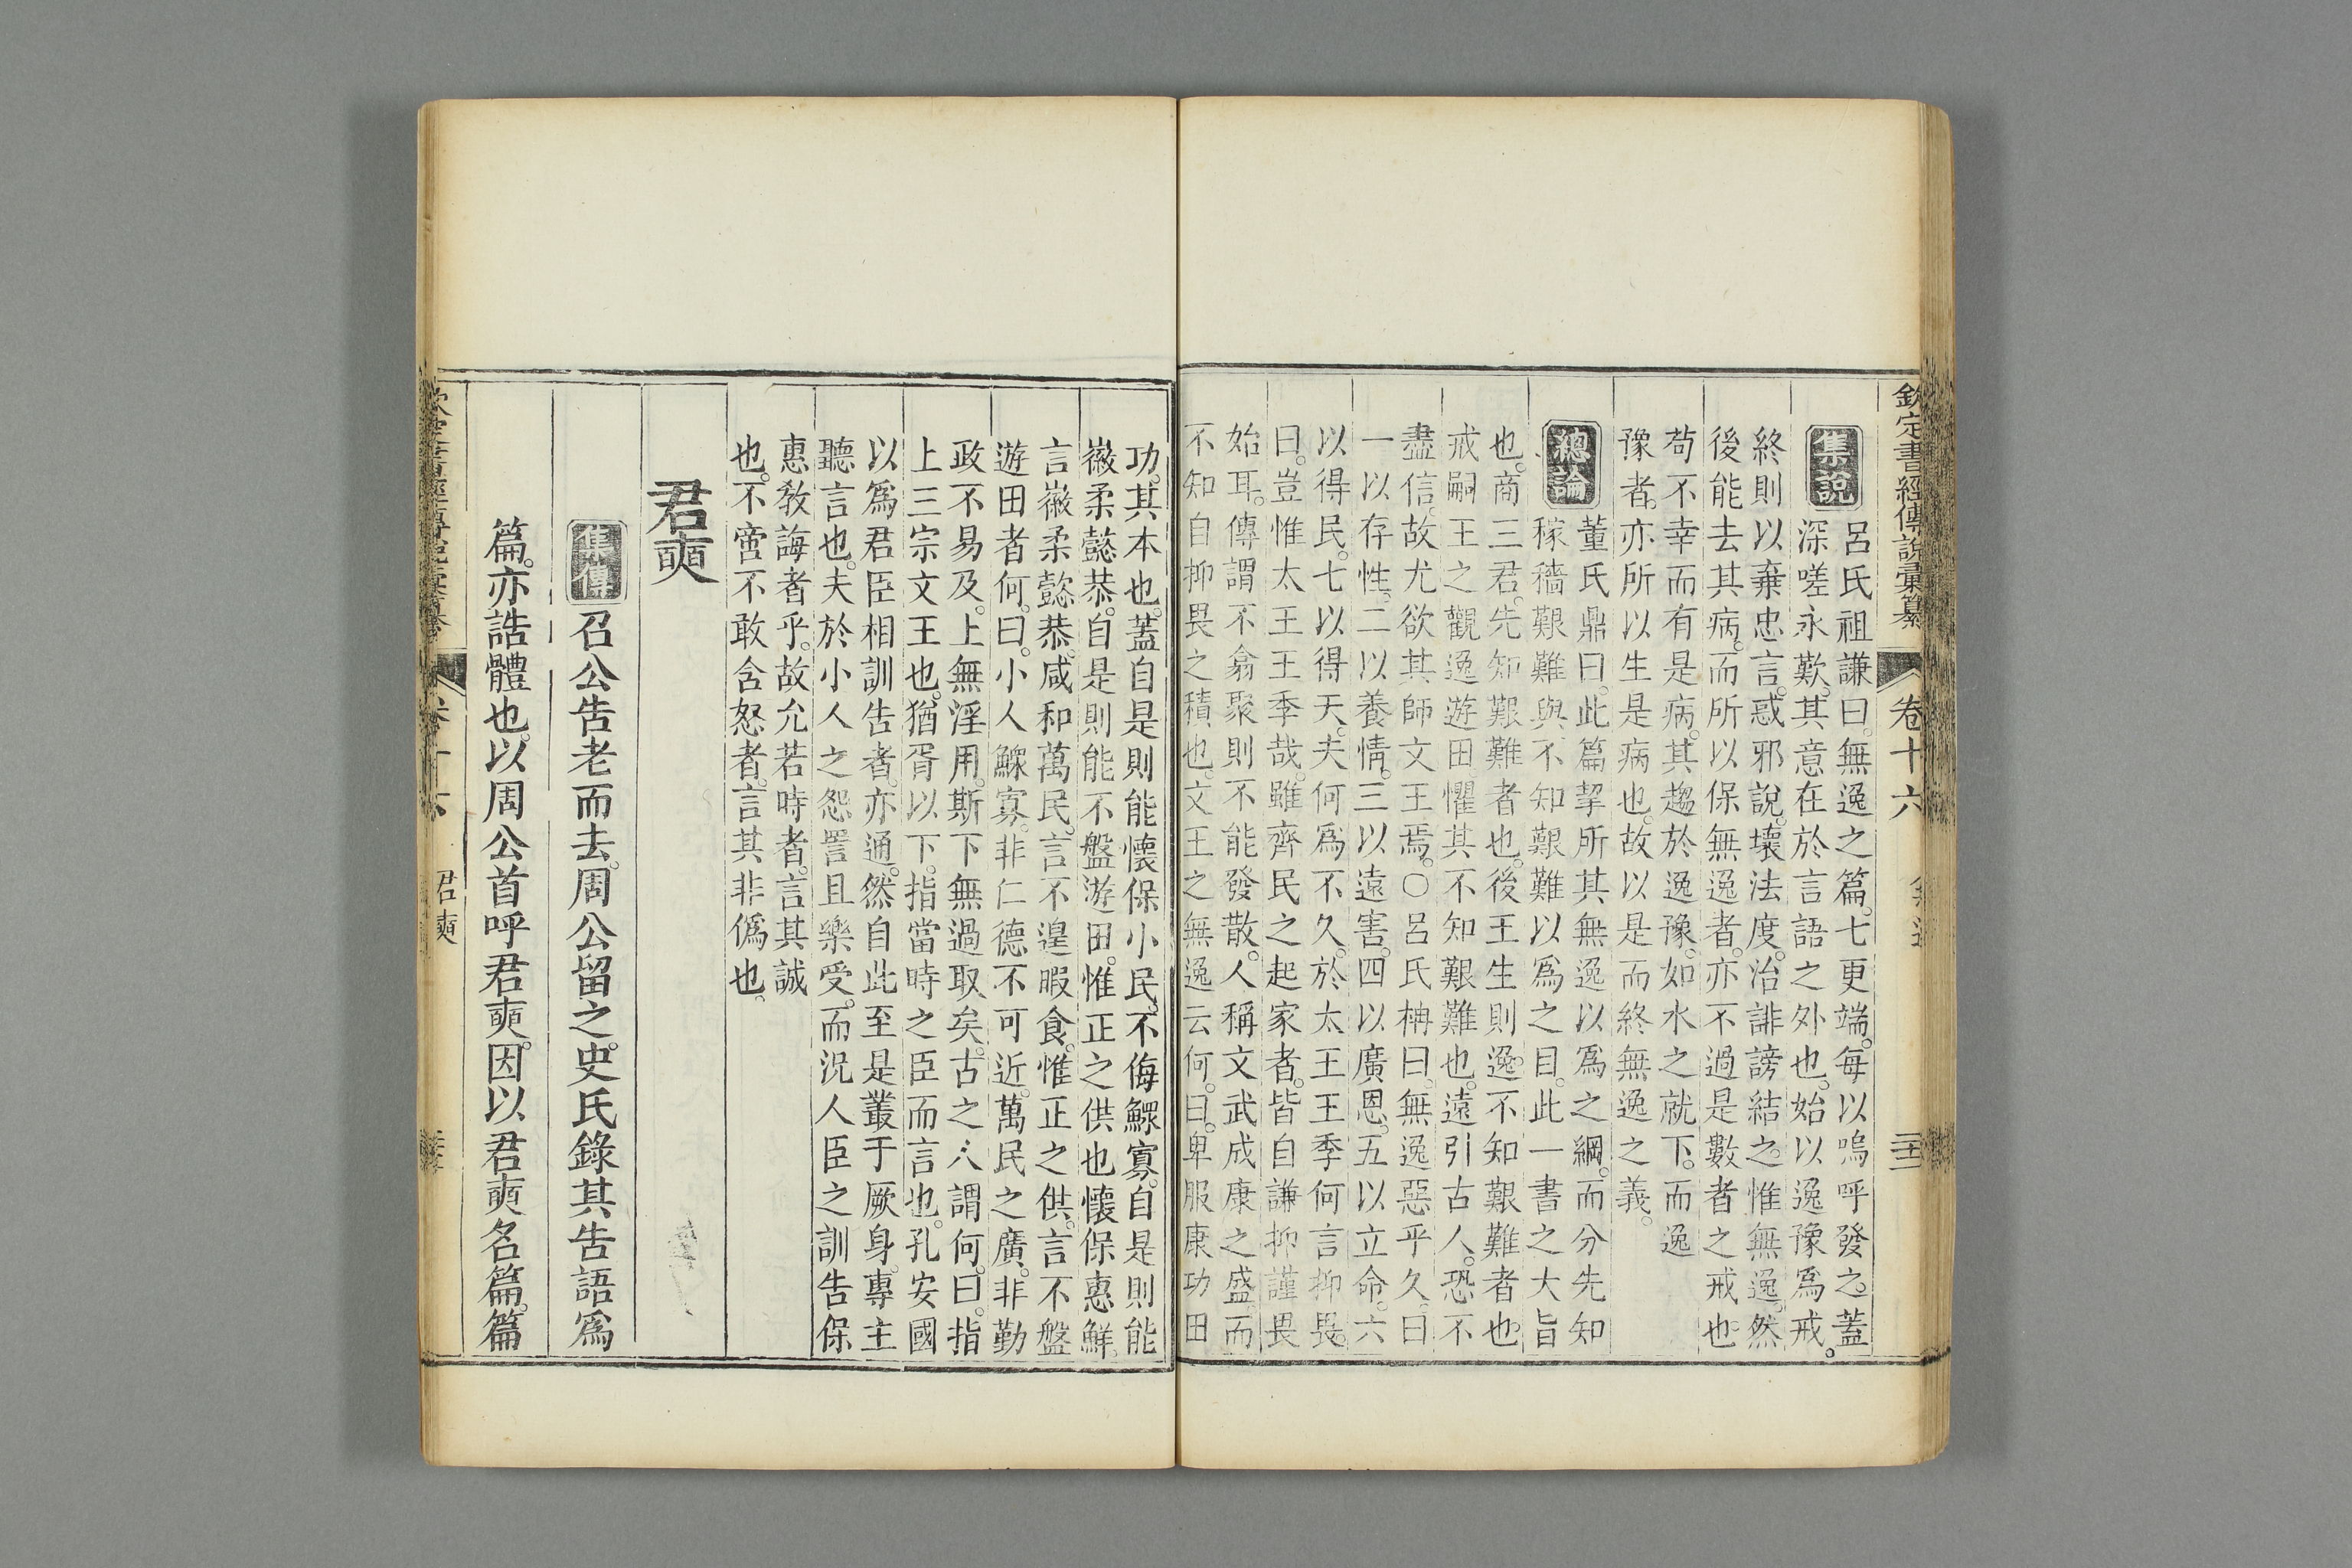 欽定書經傳說彙纂 卷十六
集說
呂氏祖謙曰無逸之篇七更端每以嗚呼發之蓋
深嗟永歎其意在於言語之外也始以逸豫爲戒
終則以棄忠言惑邪說壞法度治誹謗結之惟無逸然
後能去其病而所以保無逸者亦不過是數者之戒也
苟不幸而有是病其趨於逸豫如水之就下而逸
豫者亦所以生是病也故以是而終無逸之義
總論
董氏鼎曰此篇挈所其無逸以爲之綱而分先知
稼穡艱難與不知艱難以爲之目此一書之大旨
也商三君先知艱難者也後王生則逸不知艱難者也
戒嗣王之觀逸遊田懼其不知艱難也遠引古人恐不
盡信故尤欲其師文王焉○呂氏柟曰無逸惡乎久曰
一以存性二以養情三以遠害四以廣恩五以立命六
以得民七以得天夫何爲不久於太王王季何言抑畏
曰豈惟太王王季哉雖齊民之起家者皆自謙抑謹畏
始耳傳謂不翕聚則不能發散人稱文武成康之盛而
不知自抑畏之積也文王之無逸云何曰卑服康功田
功其本也蓋自是則能懷保小民不侮鰥寡自是則能
徽柔懿恭自是則能不盤遊田惟正之供也懷保惠鮮
言徽柔懿恭咸和萬民言不遑暇食惟正之供言不盤
遊田者何曰小人鰥寡非仁德不可近萬民之廣非勤
政不易及上無淫用斯下無過取矣古之人謂何曰指
上三宗文王也猶胥以下指當時之臣而言也孔安國
以爲君臣相訓告者亦通然自此至是叢于厥身專主
聽言也夫於小人之怨詈且樂受而況人臣之訓告保
惠敎誨者乎故允若時者言其誠
也不啻不敢含怒者言其非僞也
君奭
集傳
召公告老而去周公留之史氏錄其告語爲
篇亦誥體也以周公首呼君奭因以君奭名篇篇
君奭